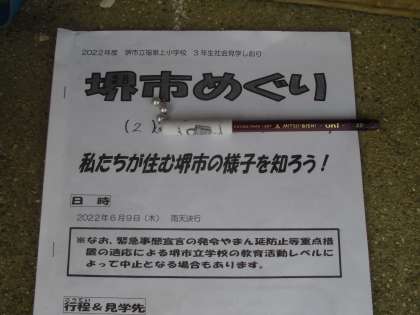 2022年度 堺市立福泉上小学校 3年生社会見学しおり
堺市めぐり
(2)
MITSU-BISHI uni
私たちが住む堺市の様子を知ろう！
日時
2022年6月9日（木） 雨天決行
※なお、緊急事態宣言の発令やまん延防止等重点措
置の適応による堺市立学校の教育活動レベルに
よって中止となる場合もあります。
行程＆見学先